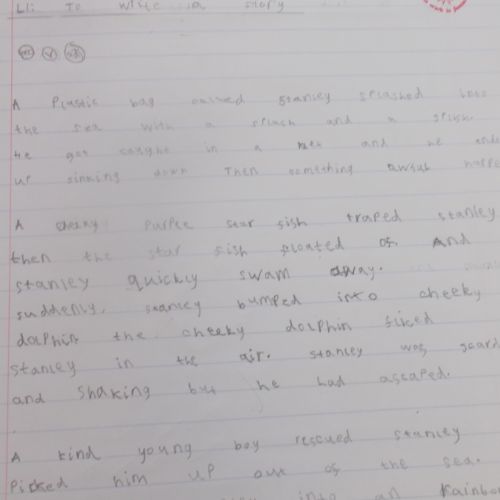 LI: To write a story
A Plastic bag called Stanley splashed into
the sea with a splash and a splosh.
He got caught in a net and he ende
up sinking down Then something awful happe
A cheeky Purple star fish traped Stanley
then the star fish floated of And
Stanley quickly swam away.
suddenly, Stanley bumped into cheeky
dolphin the cheeky dolphin fliked
Stanley in the air. Stanley was scard
and shaking but he had ascaped.
A kind young boy rescued Stanley
Picked him up out of the sea.
into an rainbo